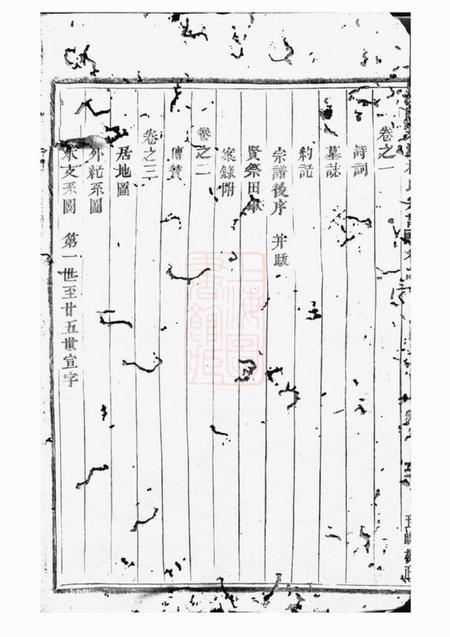 卷之一
詩詞
墓誌
約記
宗譜後序 并䟦
賢祭田
案錄附
卷之二
傳贊
卷之三
居地圖
外紀系圖
本支系圖 第一世至廿五世宣字